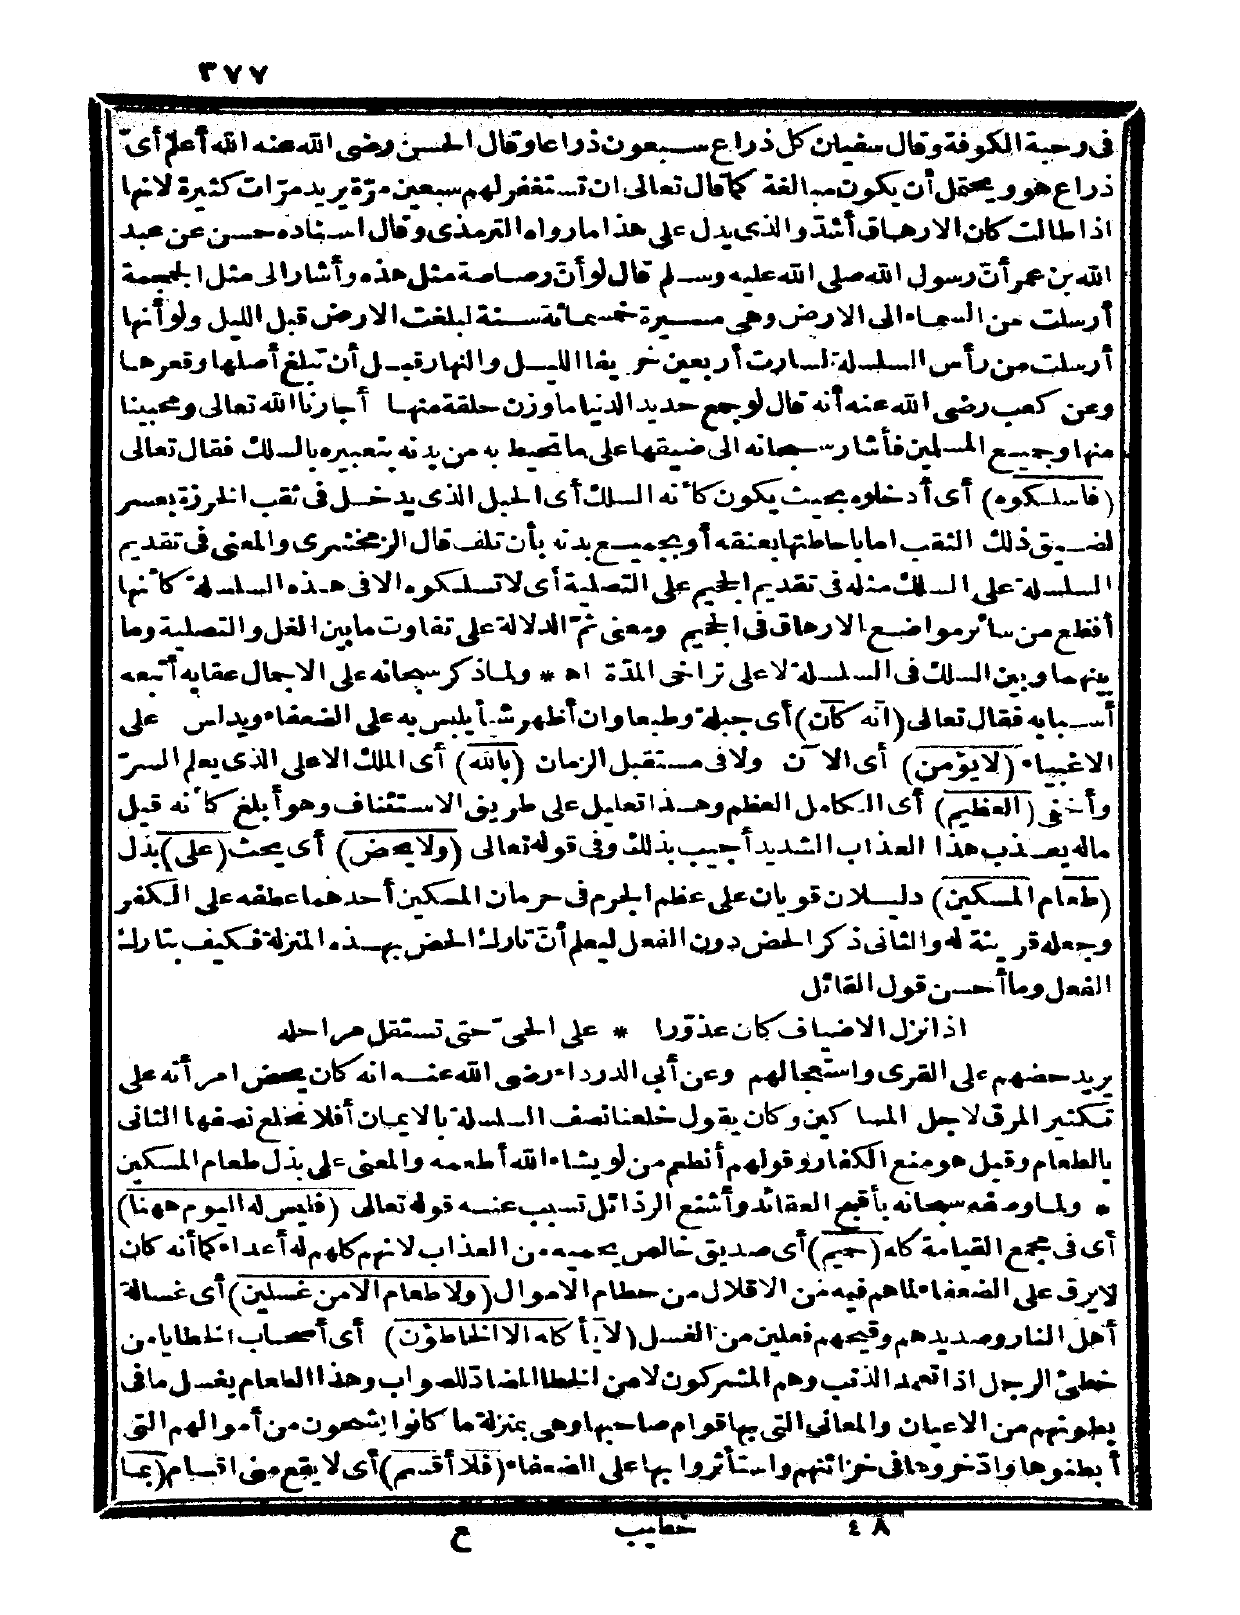 ٣٧٧
فى رحبة الكوفة وقال سفيان كل ذراع سبعون ذراعا وقال الحسن رضى الله عنه الله أعلم أىّ
ذراع هو ويحتمل أن يكون مبالغة كما قال تعالى ان تستغفر لهم سبعين مرّة يريد مرّات كثيرة لانها
اذا طالت كان الارهاق أشدّ والذى يدل على هذا ما رواه الترمذى وقال اسناده حسن عن عبد
الله بن عمر أنّ رسول الله صلى الله عليه وسلم قال لو أنّ رصاصة مثل هذه وأشار الى مثل الجمجمة
أرسلت من السماء الى الارض وهى مسيرة خمسمائة سنة لبلغت الارض قبل الليل ولو أنها
أرسلت من رأس السلسلة لسارت أربعين خريفا الليل والنهار قبل أن تبلغ أصلها وقعرها
وعن كعب رضى الله عنه أنه قال لو جمع حديد الدنيا ما وزن حلقة منها أجارنا الله تعالى ومحبينا
منها وجميع المسلمين فأشار سبحانه الى ضيقها على ما تحيط به من بدنه بتعبيره بالسلك فقال تعالى
(فاسلكوه) أى أدخلوه بحيث يكون كأنه السلك أى الحبل الذى يدخل فى ثقب الخرزة بعسر
لضيق ذلك الثقب اما باحاطتها بعنقه أو بجميع بدنه بأن تلف قال الزمخشرى والمعنى فى تقديم
السلسلة على السلك مثله فى تقديم الجحيم على التصلية أى لا تسلكوه الا فى هذه السلسلة كأنها
أفظع من سائر مواضع الارهاق فى الجحيم ومعنى ثمّ الدلالة على تفاوت ما بين الغل والتصلية وما
بينهما وبين السلك فى السلسلة لا على تراخى المدّة اه * ولما ذكر سبحانه على الاجمال عقابه أتبعه
أسبابه فقال تعالى (انه كان) أى جبلة وطبعا وان أظهر شيأ يلبس به على الضعفاء ويدلس على
الاغبياء (لا يؤمن) أى الآن ولا فى مستقبل الزمان (بالله) أى الملك الاعلى الذى يعلم السرّ
وأخفى (العظيم) أى الكامل العظم وهذا تعليل على طريق الاستئناف وهو أبلغ كأنه قيل
ماله يعذب هذا العذاب الشديد أجيب بذلك وفى قوله تعالى (ولا يحض) أى يحث (على) بذل
(طعام المسكين) دليلان قويان على عظم الجرم فى حرمان المسكين أحدهما عطفه على الكفر
وجعله قرينة له والثانى ذكر الحض دون الفعل ليعلم أنّ تارك الحض بهذه المنزلة فكيف بتارك
الفعل وما أحسن قول القائل
اذا نزل الاضياف كان عذوّرا * على الحىّ حتى تستقل مراجله
يريد حضهم على القرى واستعجالهم وعن أبى الدرداء رضى الله عنه انه كان يحض امرأته على
تكثير المرق لاجل المساكين وكان يقول خلعنا نصف السلسلة بالايمان أفلا نخلع نصفها الثانى
بالطعام وقيل هو منع الكفار وقولهم أنطعم من لو يشاء الله أطعمه والمعنى على بذل طعام المسكين
* ولما وصفه سبحانه بأقبح العقائد وأشنع الرذائل تسبب عنه قوله تعالى (فليس له اليوم ههنا)
أى فى مجمع القيامة كله (حميم) أى صديق خالص يحميه من العذاب لانهم كلهم له أعداء كما أنه كان
لا يرق على الضعفاء لما هم فيه من الاقلال من حطام الاموال (ولا طعام الا من غسلين) أى غسالة
أهل النار وصديدهم وقيحهم فعلين من الغسل (لا يأكله الا الخاطؤن) أى أصحاب الخطايا من
خطئ الرجل اذا تعمد الذنب وهم المشركون لا من الخطا المضادّ للصواب وهذا الطعام يغسل ما فى
بطونهم من الاعيان والمعانى التى بها قوام صاحبها وهى بمنزلة ما كانوا يشحون من أموالهم التى
أبطنوها وادّخروها فى خزائنهم واستأثروا بها على الضعفاء (فلا أقسم) أى لا يقع منى اقسام (بما
٤٨ خطيب ع